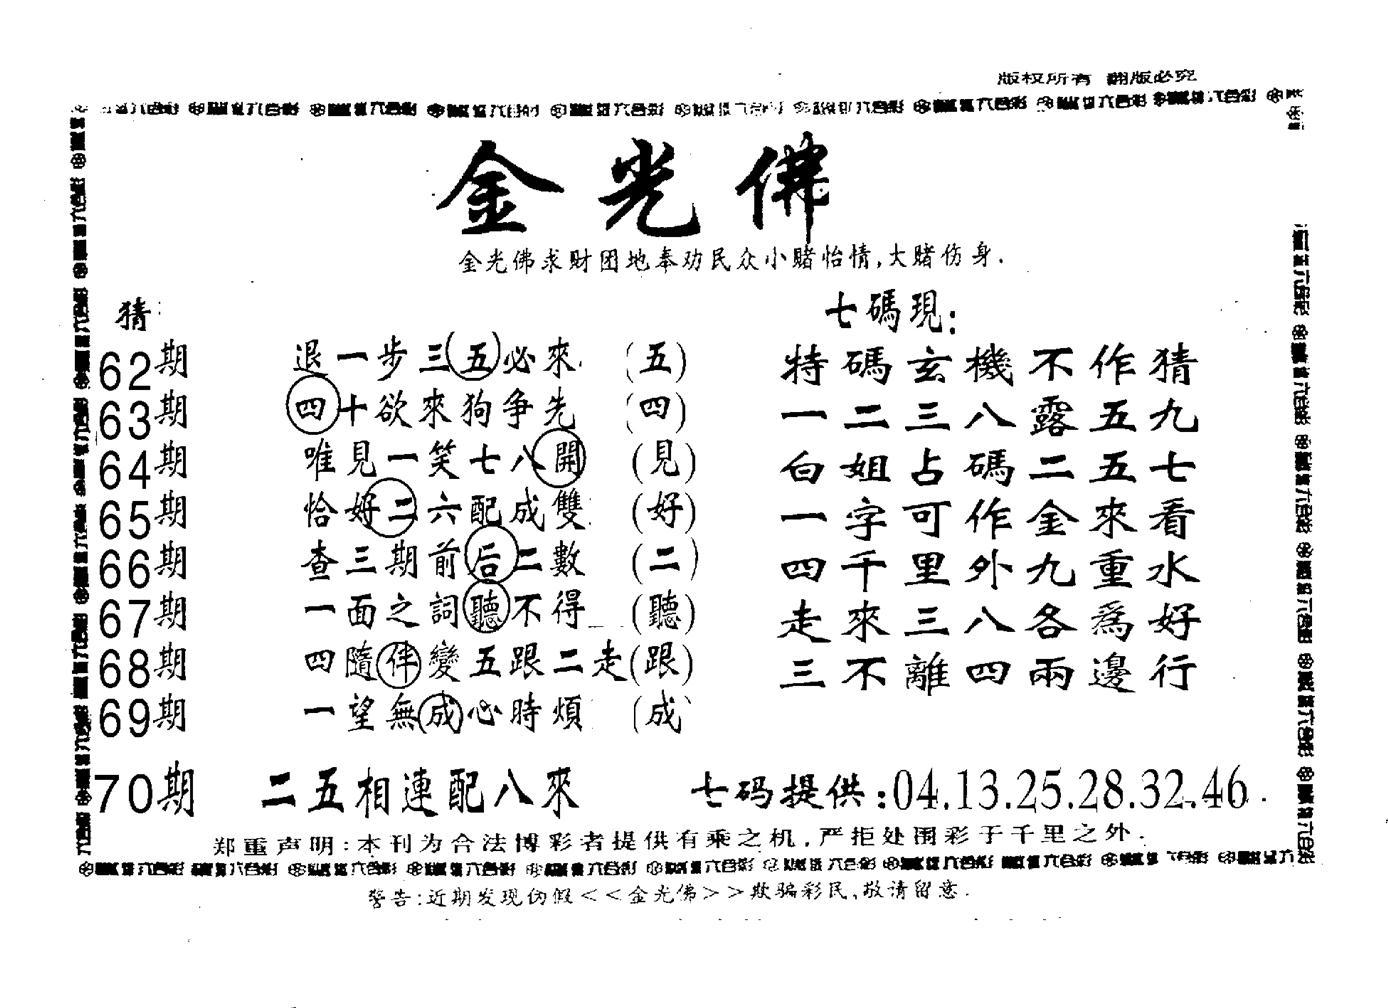 版权所有 翻版必究
金光佛
金光佛求财团地奉劝民众小赌怡情,大赌伤身.
猜:
62期 退一步三五必來 (五)
63期 四十欲來狗争先 (四)
64期 唯見一笑七八開 (見)
65期 恰好二六配成雙 (好)
66期 查三期前后二數 (二)
67期 一面之詞聽不得 (聽)
68期 四隨伴變五跟二走(跟)
69期 一望無成心時煩 (成)
七碼現:
特碼玄機不作猜
一二三八露五九
白姐占碼二五七
一字可作金來看
四千里外九重水
走來三八各爲好
三不離四兩邊行
70期 二五相連配八來 七码提供:04.13.25.28.32.46.
郑重声明:本刊为合法博彩者提供有乘之机,严拒处围彩于千里之外.
警告:近期发现伪假<<金光佛>>欺骗彩民,敬请留意.